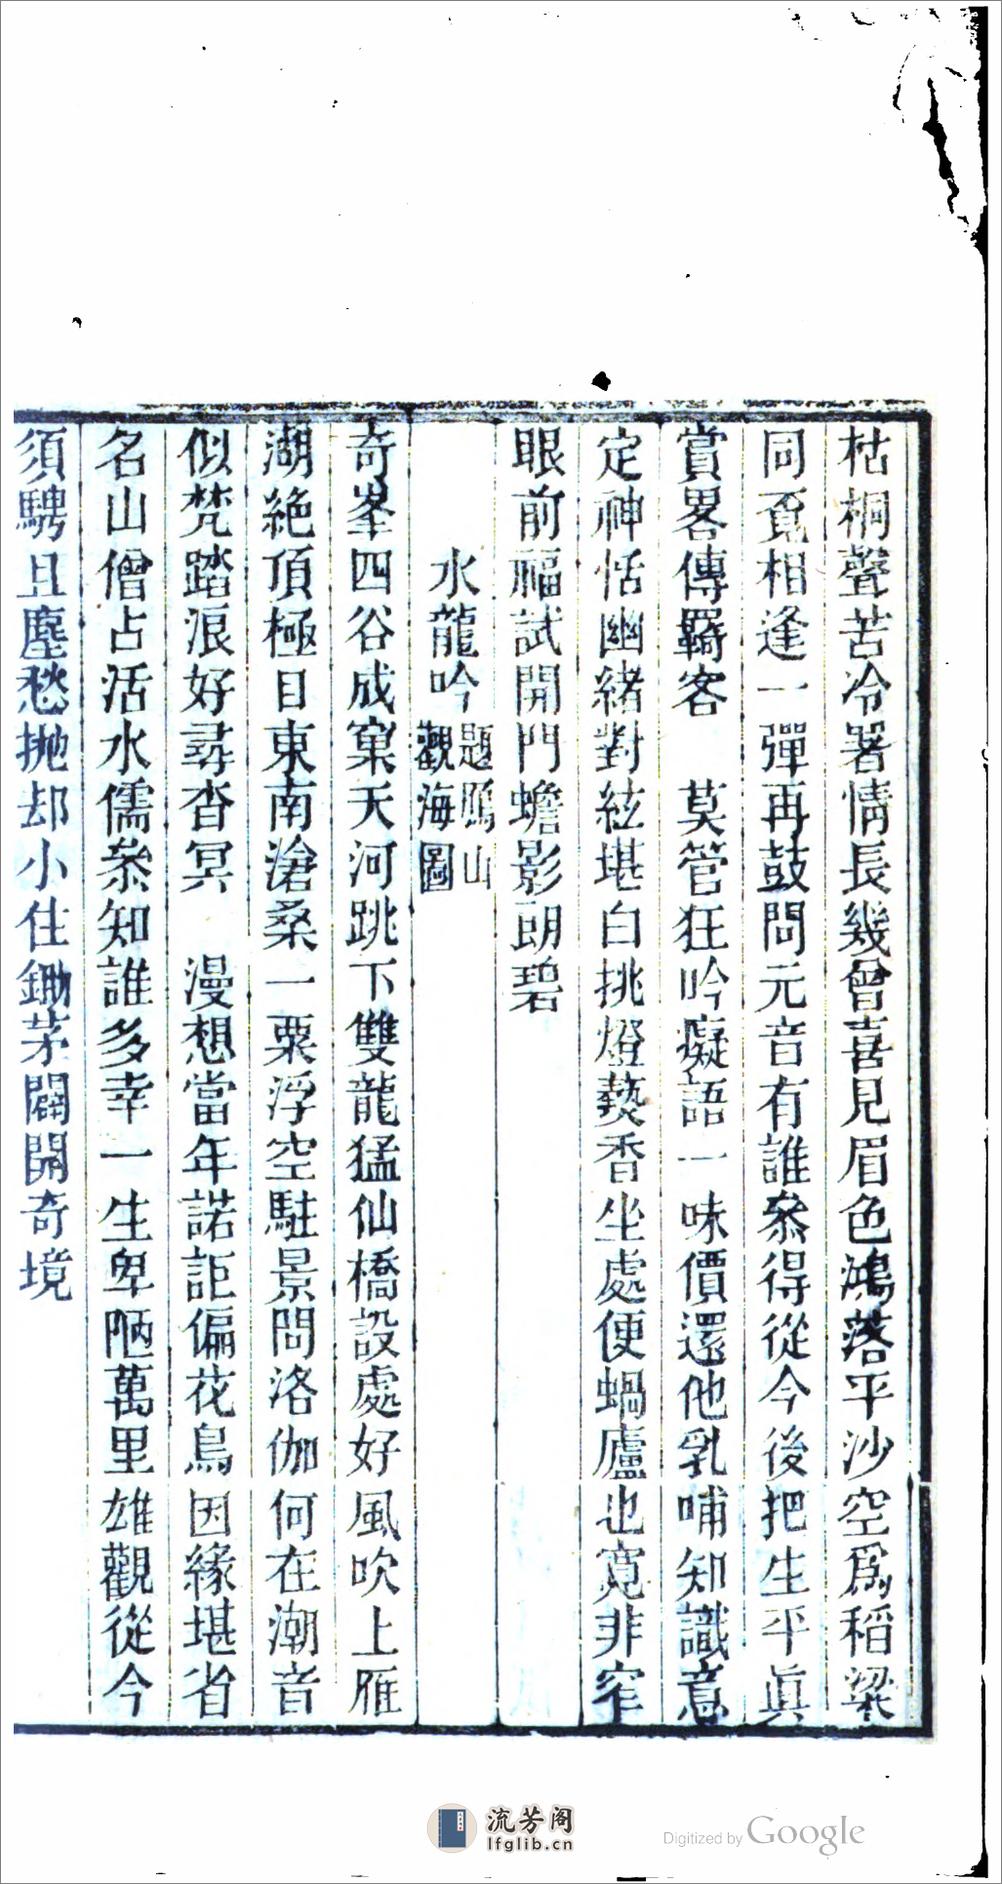 枯桐聲苦冷署情長幾曾喜見眉色鴻落平沙空爲稻粱
同覔相逢一彈再鼓問元音有誰叅得從今後把生平眞
賞畧傳羇客　莫管狂吟癡語一味價還他乳哺知識意
定神恬幽緒對絃堪白挑燈爇香坐處便蝸廬也寛非窄
眼前福試開門蟾影朗碧
水龍吟題鴈山
觀海圖
奇峯四谷成窠天河跳下雙龍猛仙橋設處好風吹上雁
湖絶頂極目東南滄桑一粟浮空駐景問洛伽何在潮音
似梵踏浪好尋杳冥　漫想當年諾詎偏花鳥因緣堪省
名山僧占活水儒叅知誰多幸一生卑陋萬里雄觀從今
須騁且塵愁抛却小住鋤茅闢開奇境
流芳阁
lfglib.cn
Digitized by Google